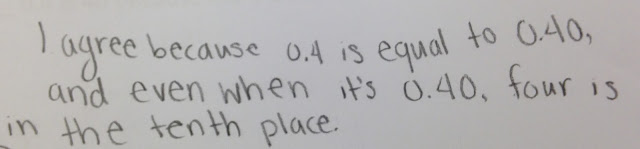 I agree because 0.4 is equal to 0.40,
and even when it's 0.40, four is
in the tenth place.